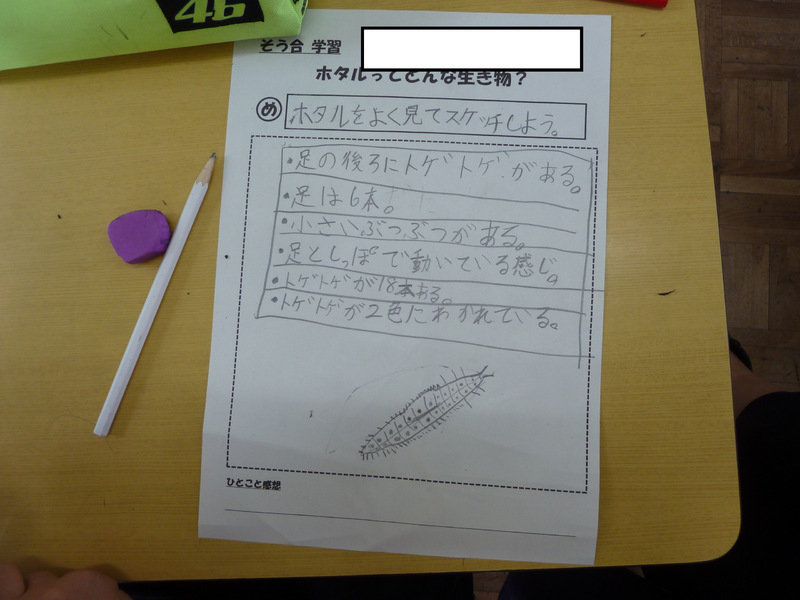 46
そう合 学習
ホタルってどんな生き物？
め ホタルをよく見てスケッチしよう。
・足の後ろにトゲトゲがある。
・足は6本。
・小さいぶつぶつがある。
・足としっぽで動いている感じ。
・トゲトゲが18本ある。
・トゲトゲが2色にわかれている。
ひとこと感想